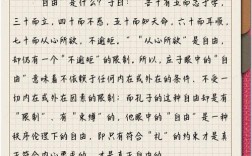 “自由”是什么？子曰：“吾十有五而志于学，
三十而立，四十而不惑，五十而知天命，六十而耳顺，
七十而从心所欲，不逾矩。”“从心所欲”是自由，
却仍有一个“不逾矩”的限制。所以，庄子眼中的“自
由”意味着不依赖于任何内在或外在的条件，不受一
切内在或外在因素的限制；而孔子的这种自由却是有
“限制”，有“束缚”的，他眼中的“自由”是一种
秩序伦理下的自由，即只有符合“礼”的约束才是真